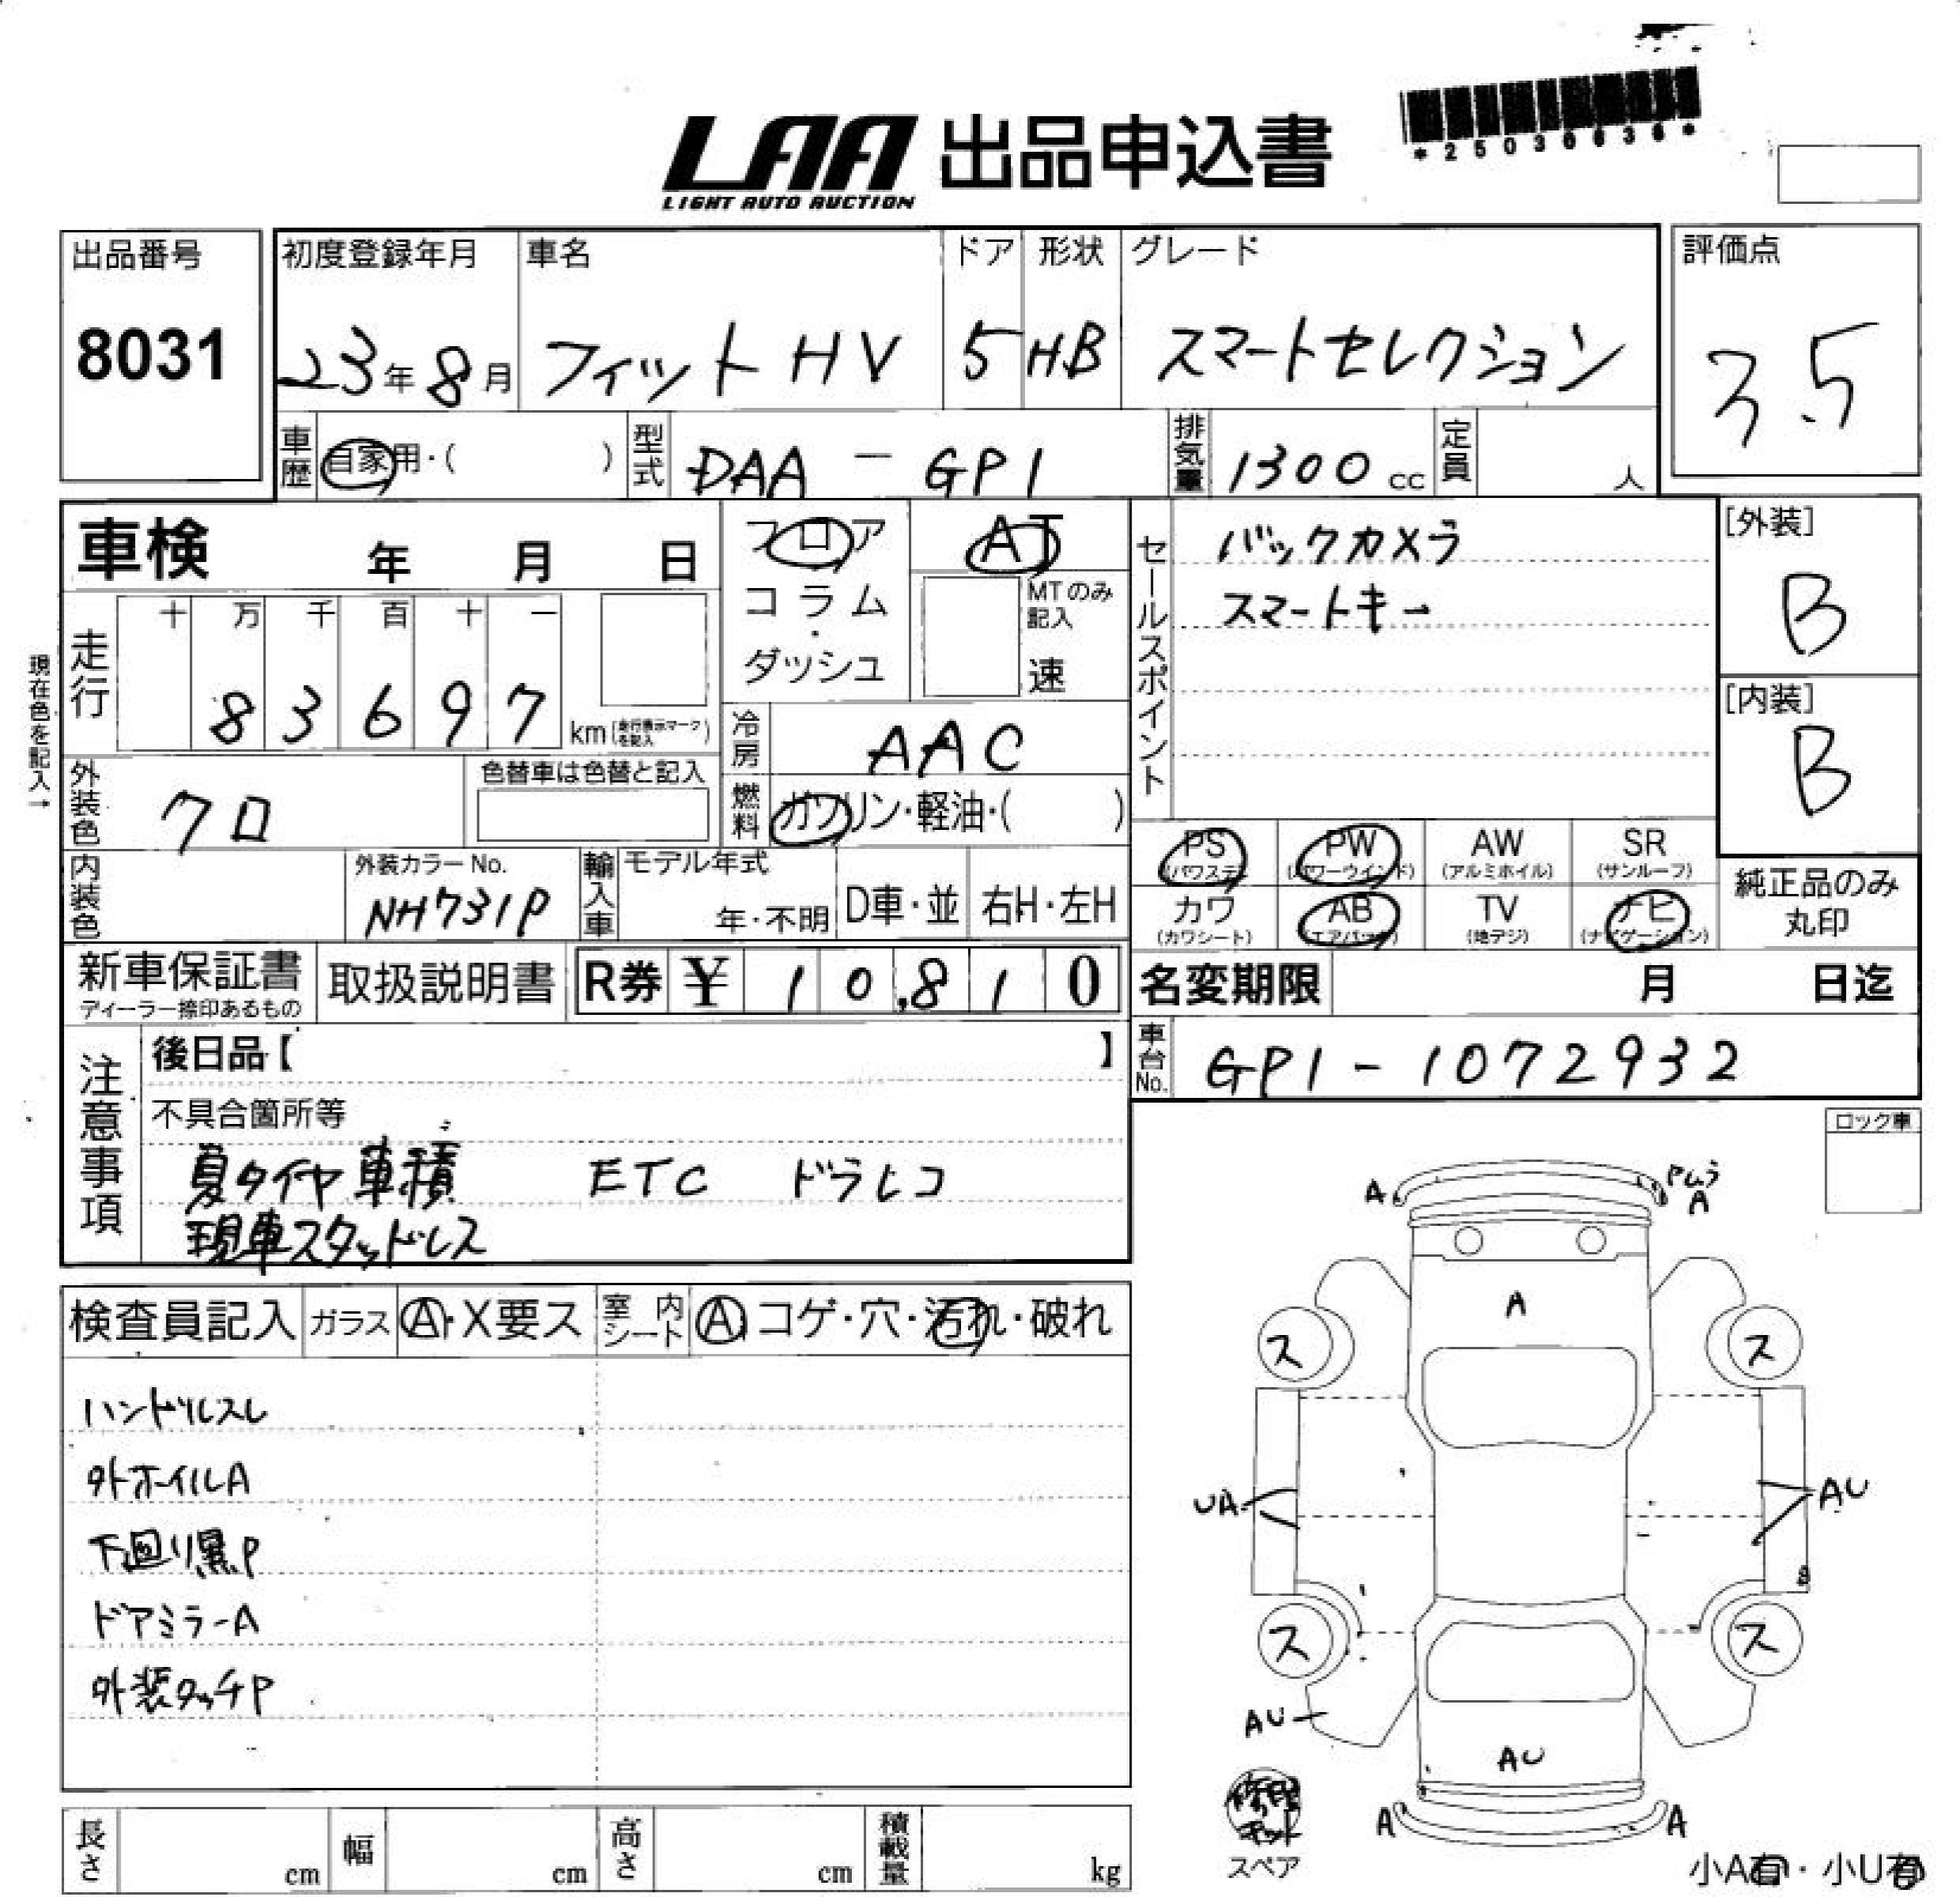 LAA 出品申込書
LIGHT AUTO AUCTION
*25030636*
出品番号
8031
初度登録年月
23年8月
車名
フィットHV
ドア
5
形状
HB
グレード
スマートセレクション
評価点
3.5
車歴
自家用・( )
型式
DAA-GP1
排気量
1300cc
定員
人
車検 年 月 日
フロア
コラム
・
ダッシュ
AT
MTのみ
記入
速
セールスポイント
バックカメラ
スマートキー
[外装]
B
[内装]
B
現在色を記入→
走行
十 万 千 百 十 一
8 3 6 9 7
km(走行表示マークを記入)
冷房
AAC
外装色
クロ
色替車は色替と記入
燃料
ガソリン・軽油・( )
内装色
外装カラーNo.
NH731P
輸入車
モデル年式
年・不明
D車・並
右H・左H
PS
(パワステ)
PW
(パワーウインド)
AW
(アルミホイル)
SR
(サンルーフ)
カワ
(カワシート)
AB
(エアバック)
TV
(地デジ)
ナビ
(ナビゲーション)
純正品のみ
丸印
新車保証書
ディーラー捺印あるもの
取扱説明書
R券 ¥ 10,810
名変期限 月 日迄
車台No.
GP1-1072932
注意事項
後日品【 】
不具合箇所等
夏タイヤ車積 ETC ドラレコ
現車スタッドレス
ロック車
検査員記入
ガラス
A・X要ス
室内シート
A コゲ・穴・汚れ・破れ
ハンドルスレ
外ホイルA
下廻り黒P
ドアミラーA
外装タッチP
A
Pムラ
A
A
ス
ス
UA
AU
ス
ス
AU
AU
A
A
修理
キット
スペア
小A有・小U有
長さ cm
幅 cm
高さ cm
積載量 kg